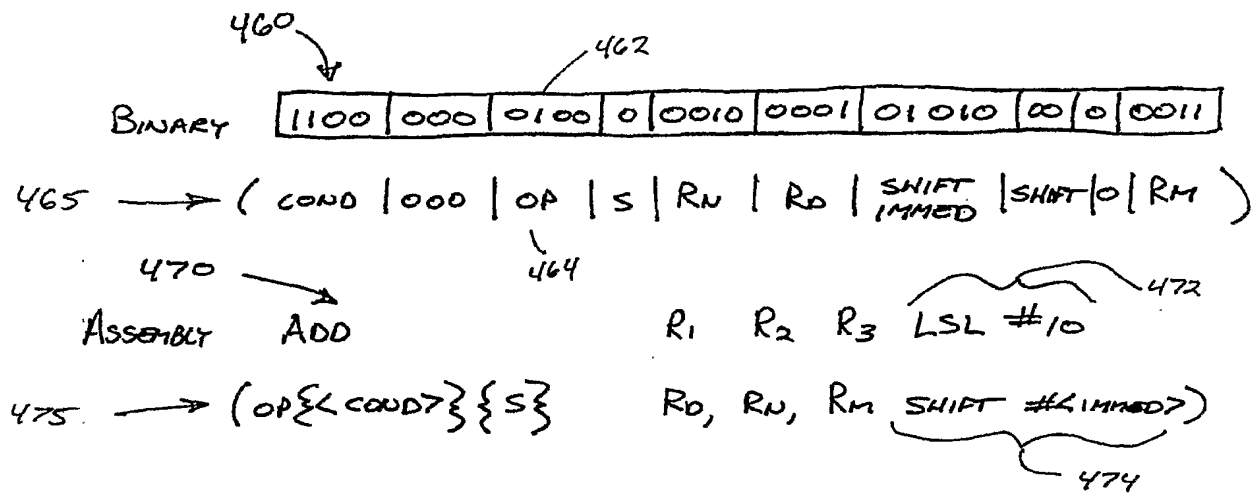 460
462
BINARY 1100 000 0100 0 0010 0001 01010 00 0 0011
465 ( COND | 000 | OP | S | RN | RD | SHIFT IMMED | SHIFT | 0 | RM )
464
470
472
ASSEMBLY ADD R1 R2 R3 LSL #10
475 (OP{<COND>}{S} RD, RN, RM SHIFT #<IMMED>)
474